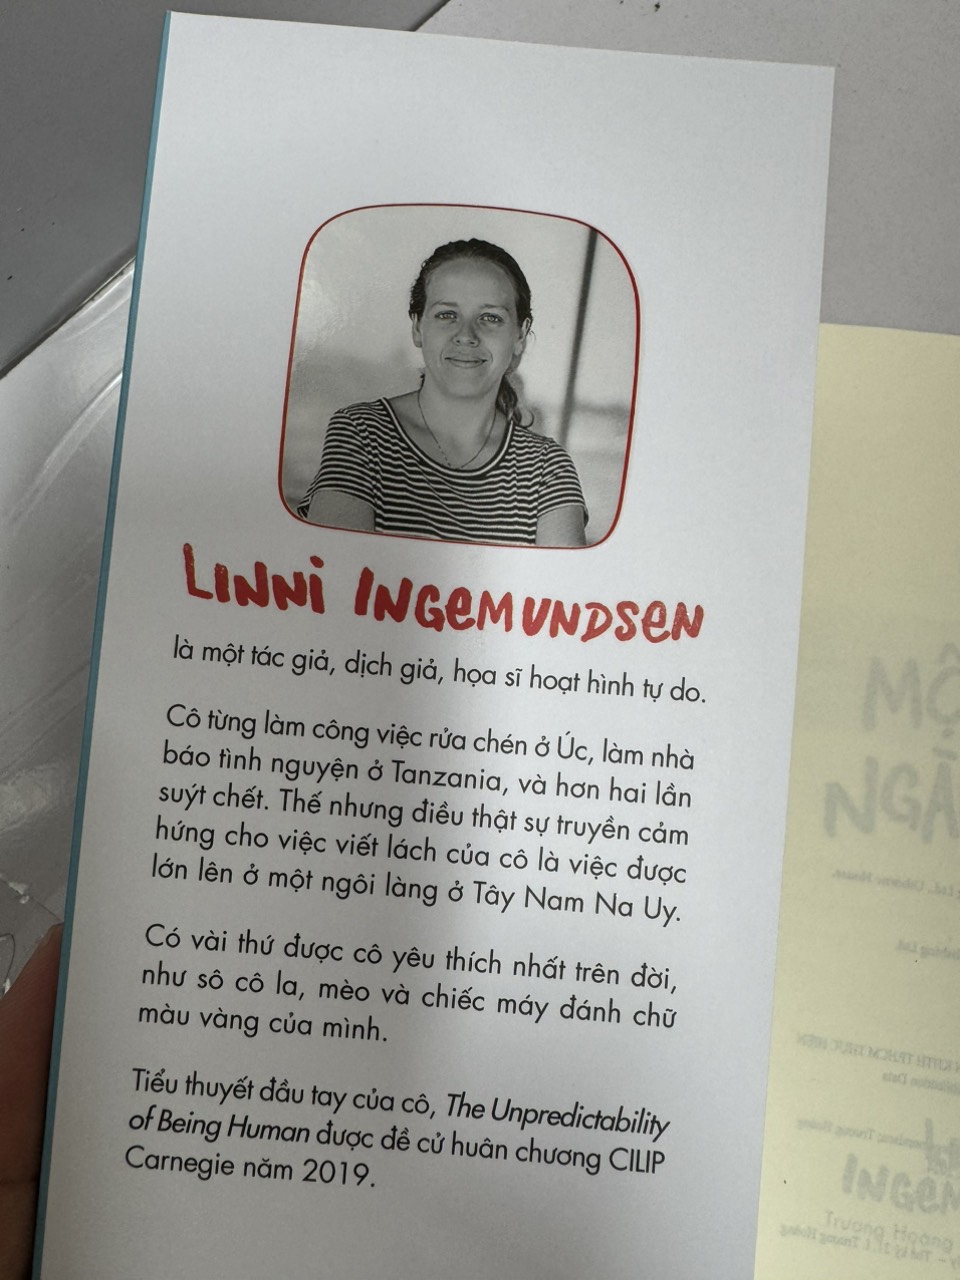 LINNI INGEMUNDSEN
là một tác giả, dịch giả, họa sĩ hoạt hình tự do.
Cô từng làm công việc rửa chén ở Úc, làm nhà
báo tình nguyện ở Tanzania, và hơn hai lần
suýt chết. Thế nhưng điều thật sự truyền cảm
hứng cho việc viết lách của cô là việc được
lớn lên ở một ngôi làng ở Tây Nam Na Uy.
Có vài thứ được cô yêu thích nhất trên đời,
như sô cô la, mèo và chiếc máy đánh chữ
màu vàng của mình.
Tiểu thuyết đầu tay của cô, The Unpredictability
of Being Human được đề cử huân chương CILIP
Carnegie năm 2019.
MỘ
NGÃ
INGEM
Trương Hoàng